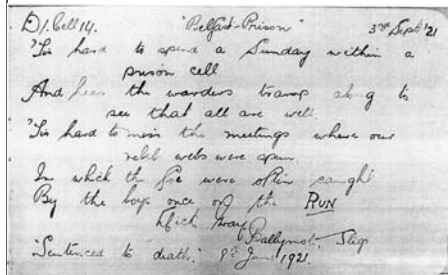 D1. Cell 14. "Belfast-Prison" 3rd Sept. '21
'Tis hard to spend a Sunday within a
prison cell
And hear the warders tramp along to
see that all are well.
'Tis hard to miss the meetings where our
rebel webs were spun
In which the foe were often caught
By the boys once on the RUN
Ballymote, Sligo
"Sentenced to death." 9th June 1921.